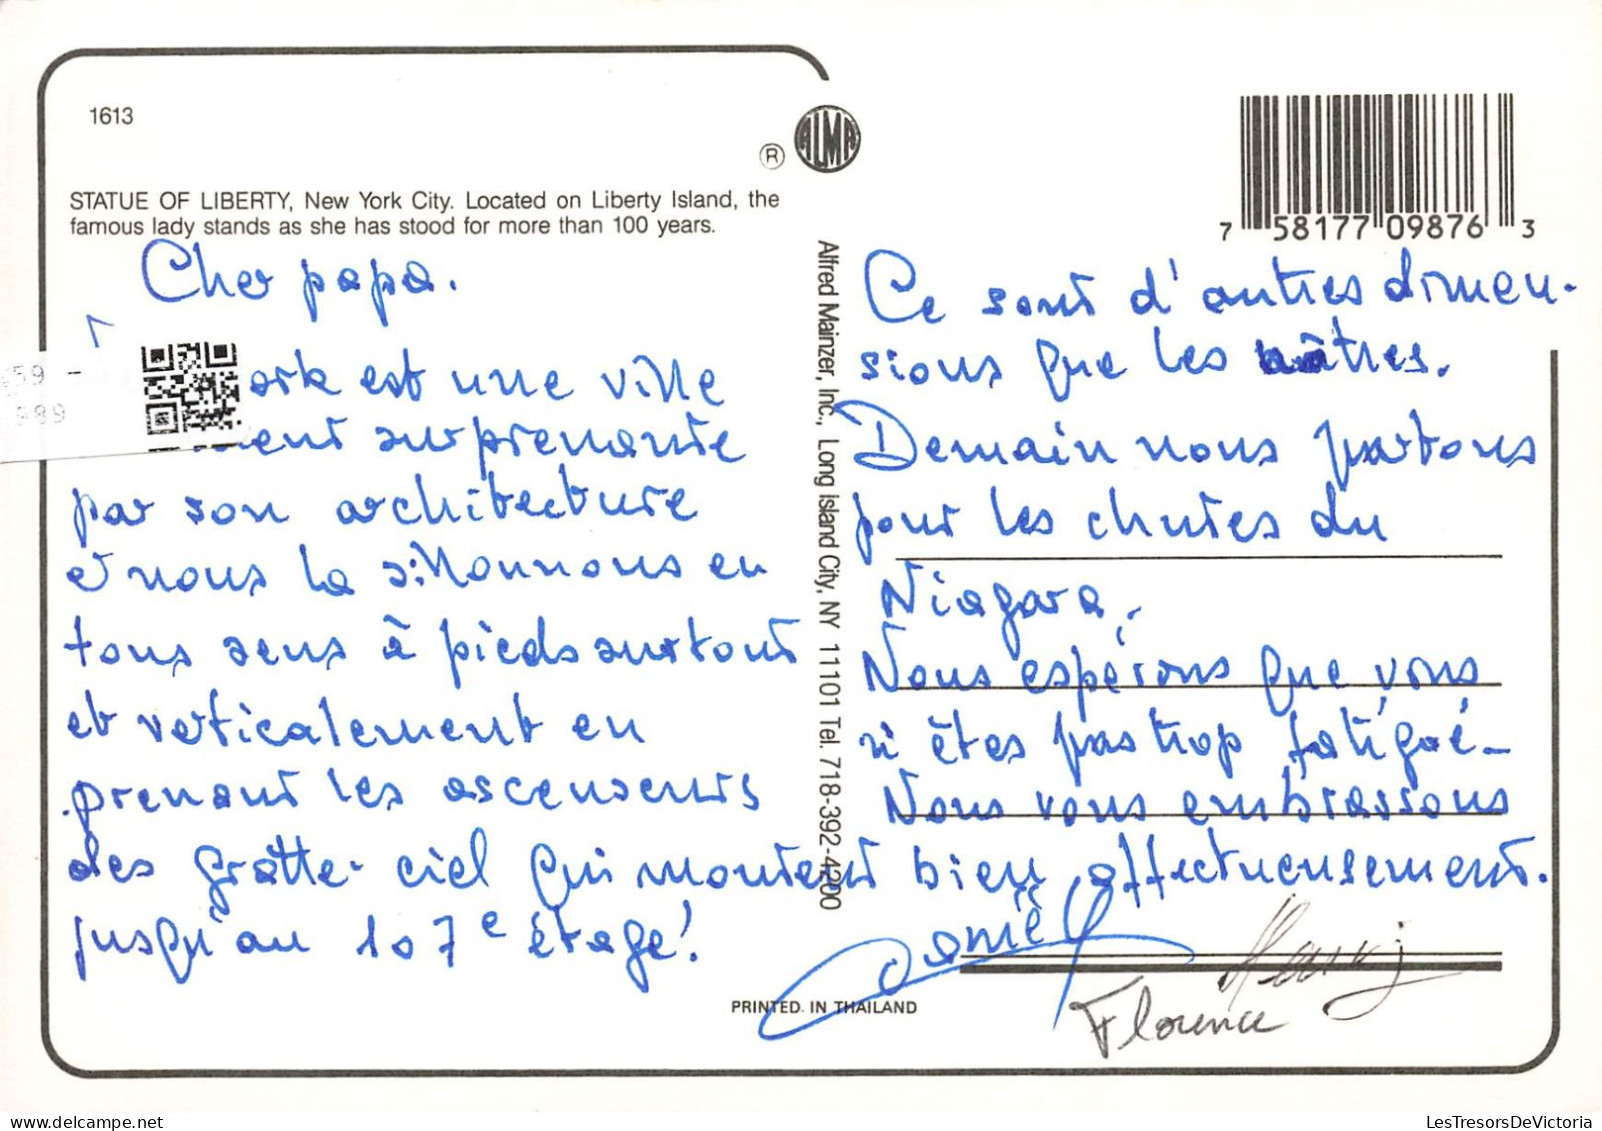 1613
® ALMA
STATUE OF LIBERTY, New York City. Located on Liberty Island, the
famous lady stands as she has stood for more than 100 years.
Cher papa.
ork est une ville
ment surprenante
par son architecture
et nous la sillonnons en
tous sens à pieds surtout
et verticalement en
prenant les ascenseurs
des gratte-ciel qui montent
jusqu'au 107e étage!
59 -
999
Alfred Mainzer, Inc., Long Island City, NY 11101 Tel. 718-392-4200
7 58177 09876 3
Ce sont d'autres dimen-
sions que les nôtres.
Demain nous partons
pour les chutes du
Niagara.
Nous espérons que vous
n'êtes pas trop fatigué-
Nous vous embrassons
bien affectueusement.
Florence
PRINTED IN THAILAND
LesTresorsDeVictoria